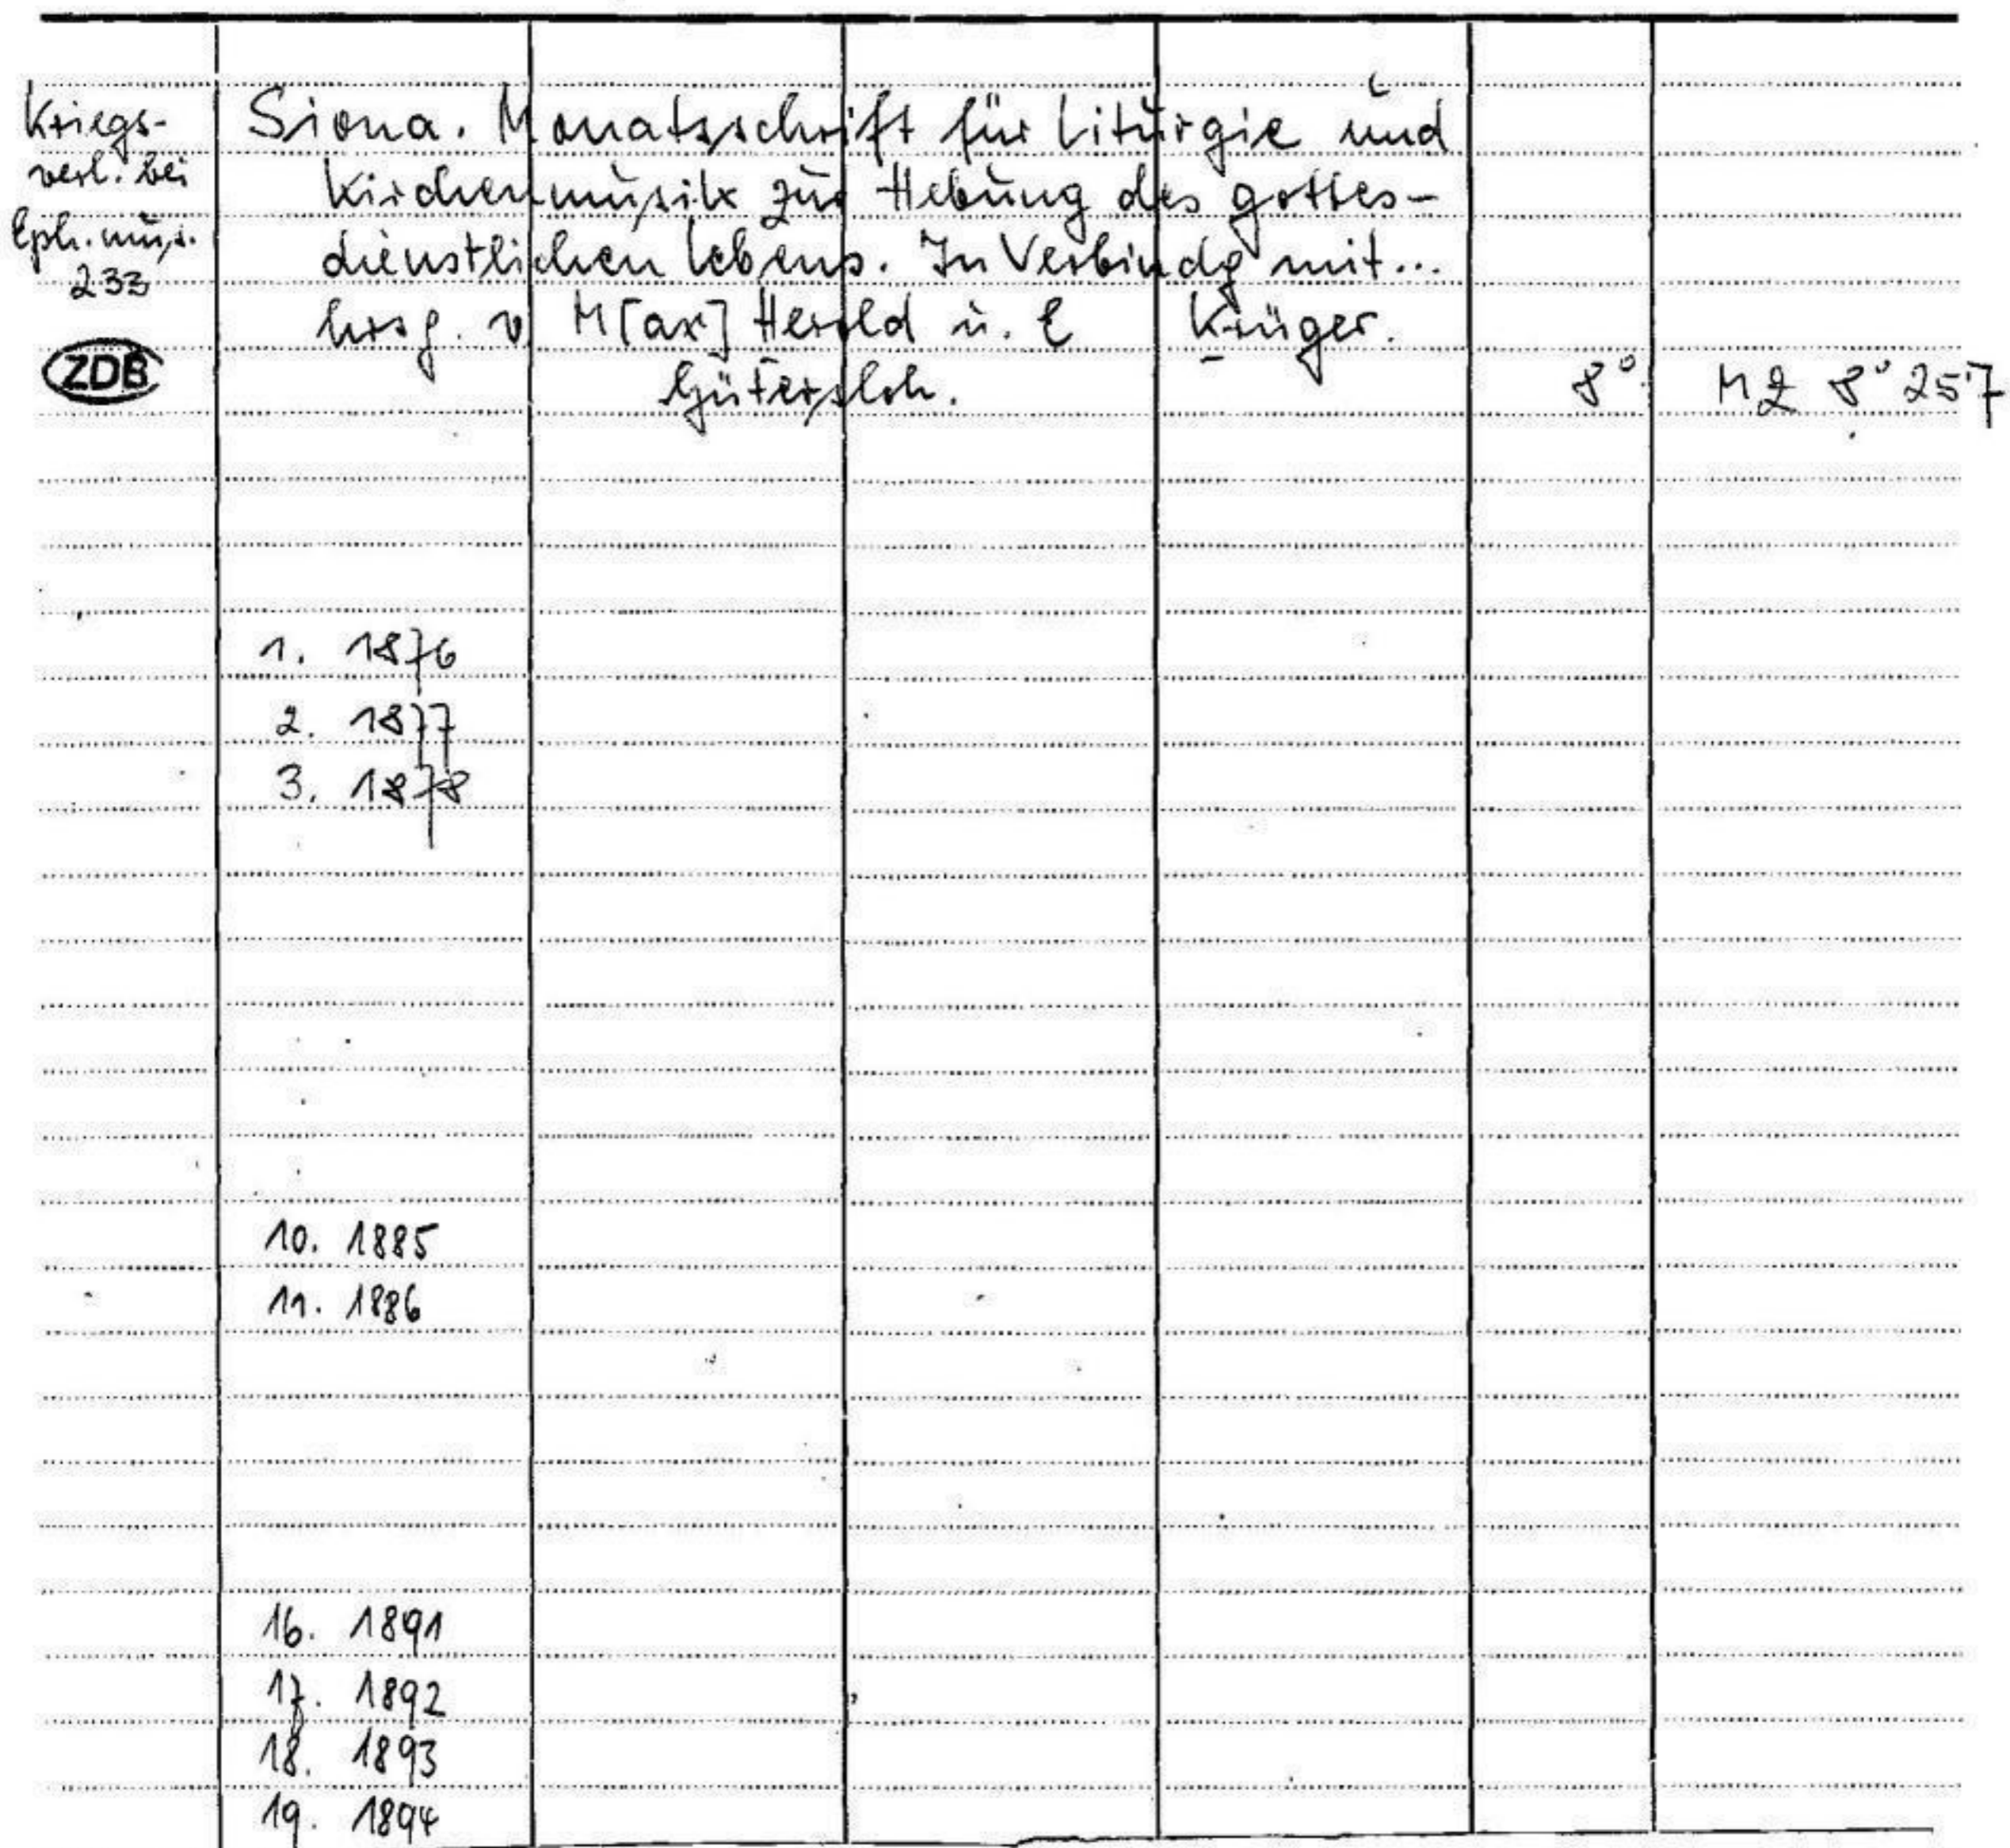 Kriegs-
verl. bei
Eph. mus.
233
ZDB
Siona. Monatsschrift für Liturgie und
Kirchenmusik zur Hebung des gottes-
dienstlichen Lebens. In Verbindg mit...
hrsg. v M[ax] Herold u. E Krüger.
Gütersloh.
8° M2 8° 257
1. 1876
2. 1877
3. 1878
10. 1885
11. 1886
16. 1891
17. 1892
18. 1893
19. 1894